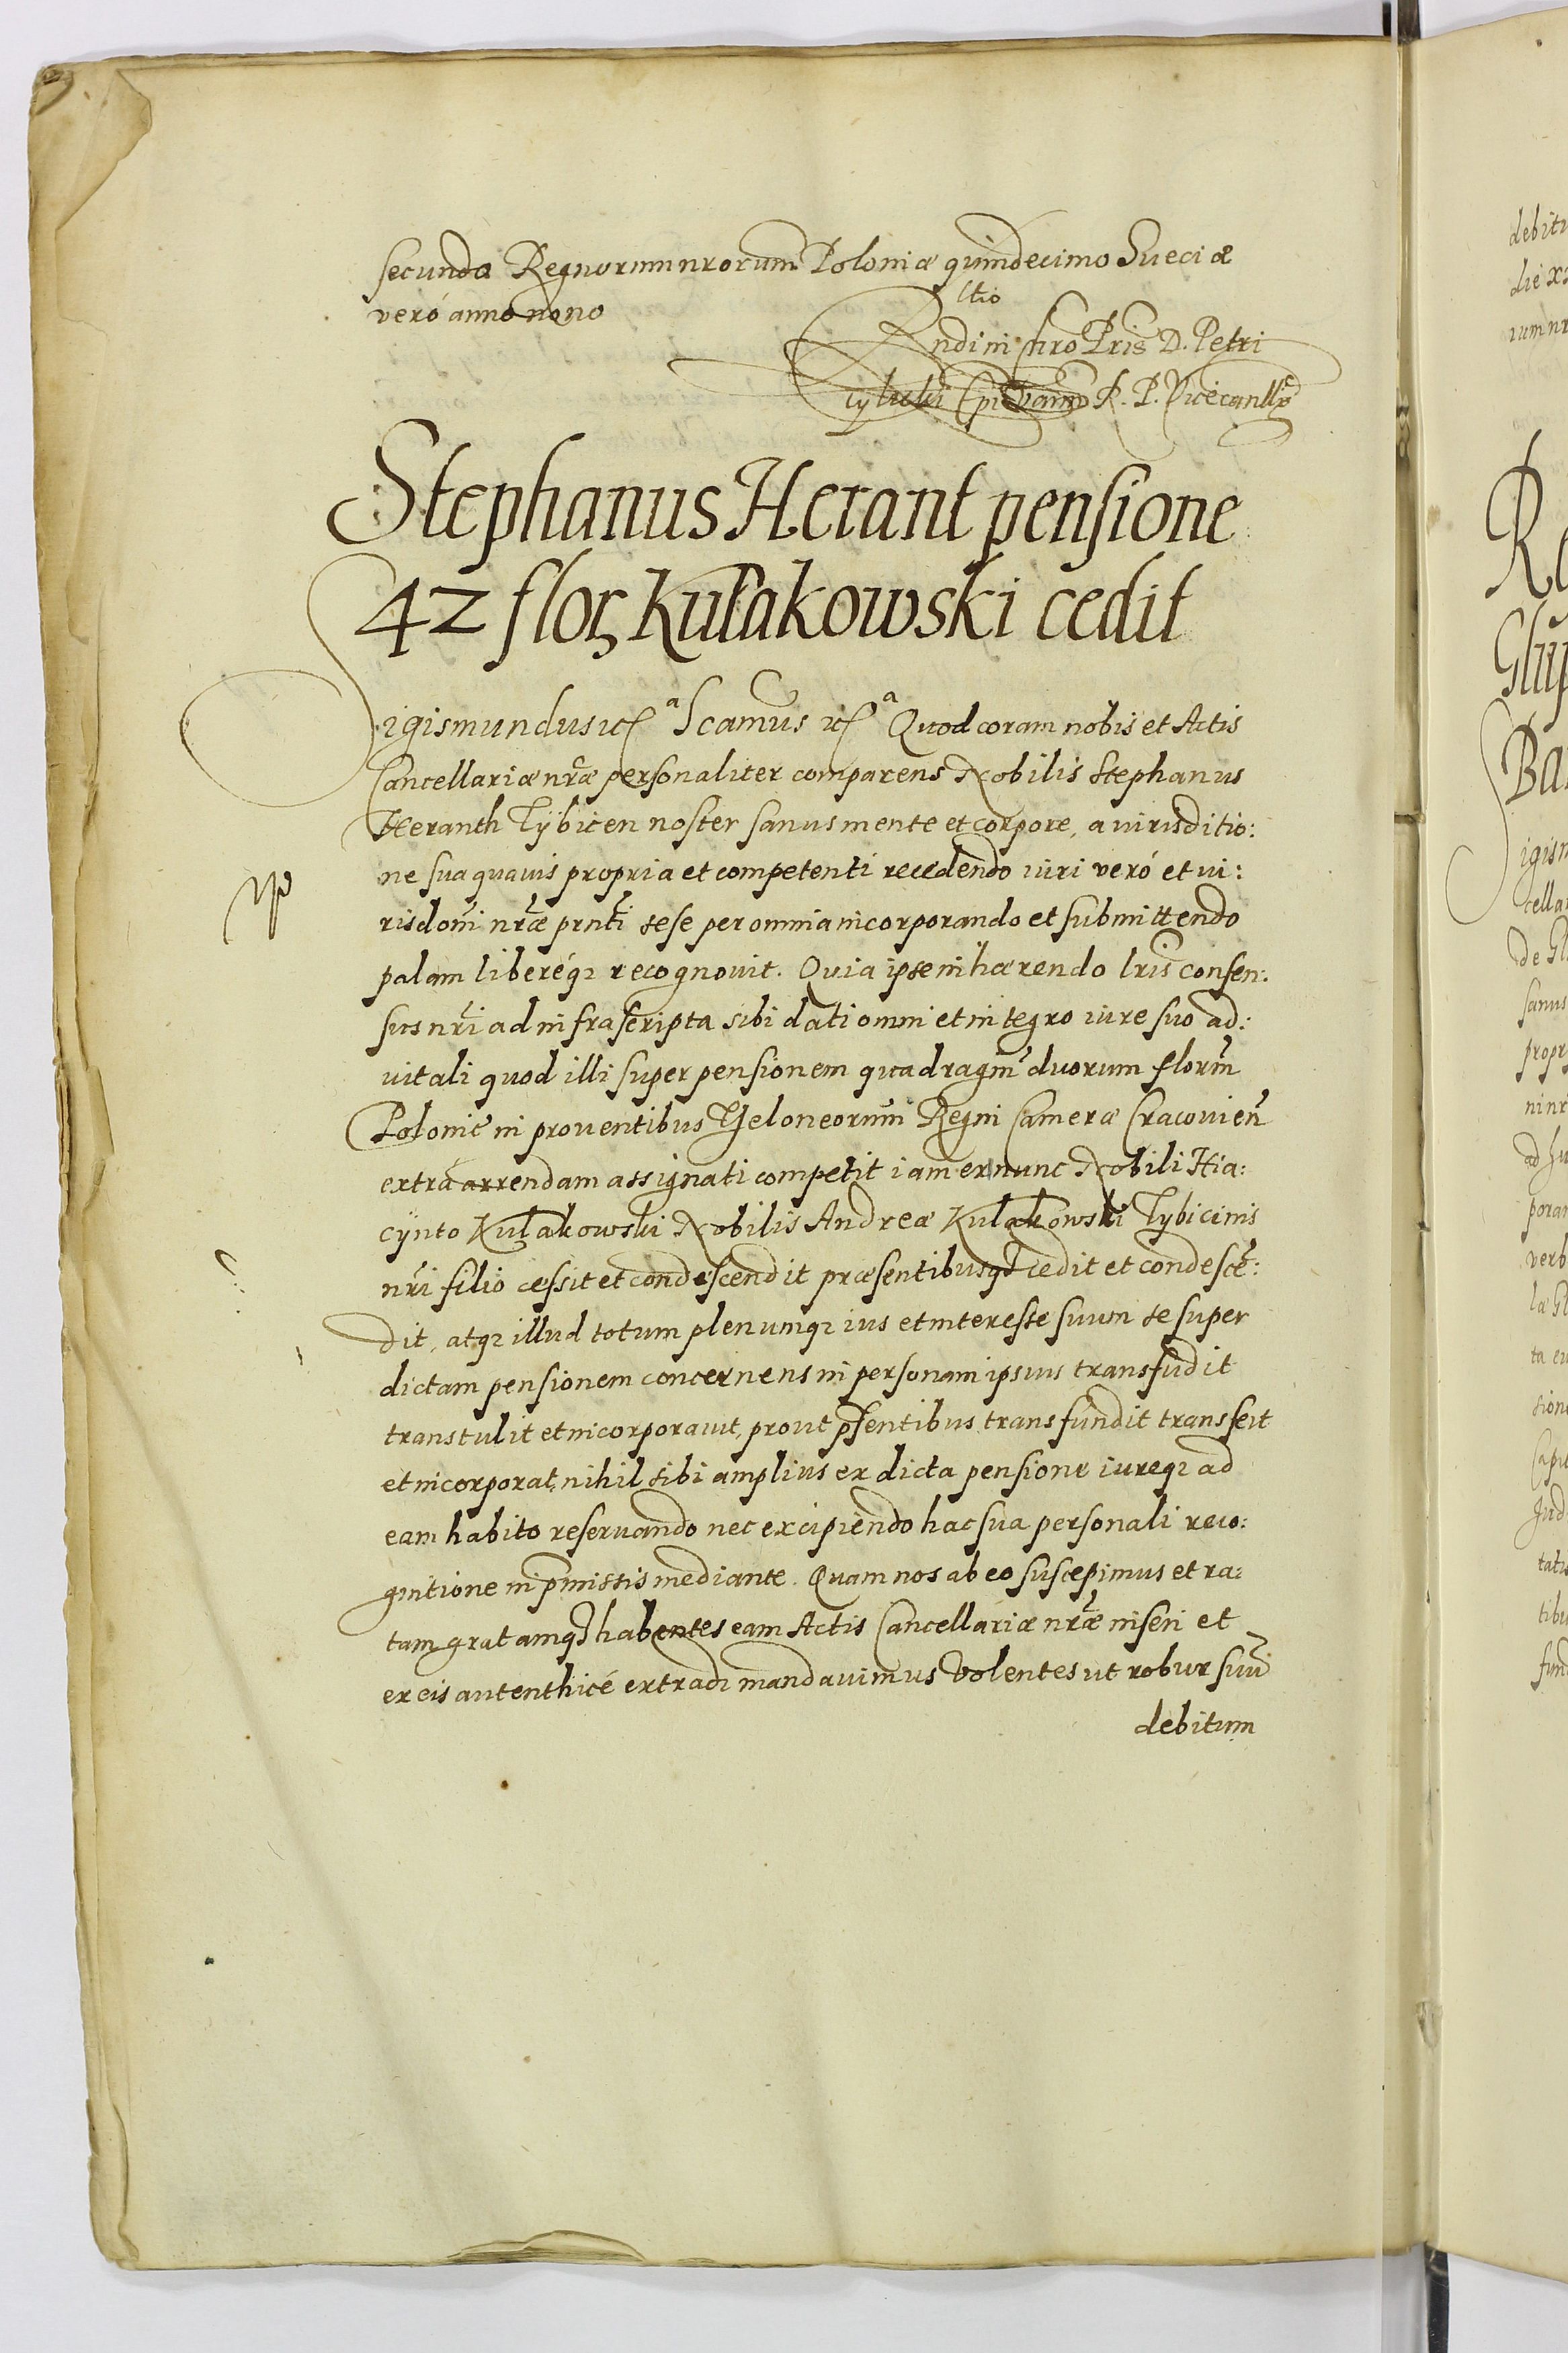 secundo Regnorum nrorum Poloniæ quindecimo Sueciæ
veró anno nono
Rndi in Chro Pris D. Petri
Tylicki Epi R. P. Vicecanllr
Stephanus Herant pensione
42 flor Kułakowski cedit
Sigismundus etc a Scamus etc a Quod coram nobis et Actis
Cancellariæ nræ personaliter comparens Nobilis Stephanus
Heranth Tybicen noster sanus mente et corpore, a iurisditio:
ne sua quauis propria et competenti recedendo iuri veró et iu:
risdoni nræ prnti sese per omnia incorporando et submittendo
palam liberéq3 recognouit. Quia ipse inhærendo lris consen:
sus nri ad infrascripta sibi dati omni et integro iure suo ad:
uitali quod illi super pensionem quadragin duorum florin
Polonic in prouentibus Theloneorum Regni Cameræ Cracouien
extra arrendam assignati competit iam ex nunc Nobili Hia:
cÿnto Kułakowski Nobilis Andreæ Kułakowski Tybicinis
nri filio cessit et condescendit præsentibusq3 cedit et condesce:
dit, atq3 illud totum plenumq3 ius et interesse suum se super
dictam pensionem concernens in personam ipsius transfudit
transtulit et incorporauit, prout psentibus transfundit transfert
et incorporat, nihil sibi amplius ex dicta pensione iureq3 ad
eam habito reseruando nec excipiendo hac sua personali reco:
gnitione in pmissis mediante. Quam nos ab eo suscepimus et ra:
tam gratamq3 habentes eam Actis Cancellariæ nræ inseri et
ex eis autenthicé extradi mandauimus Volentes ut robur suu
debitum